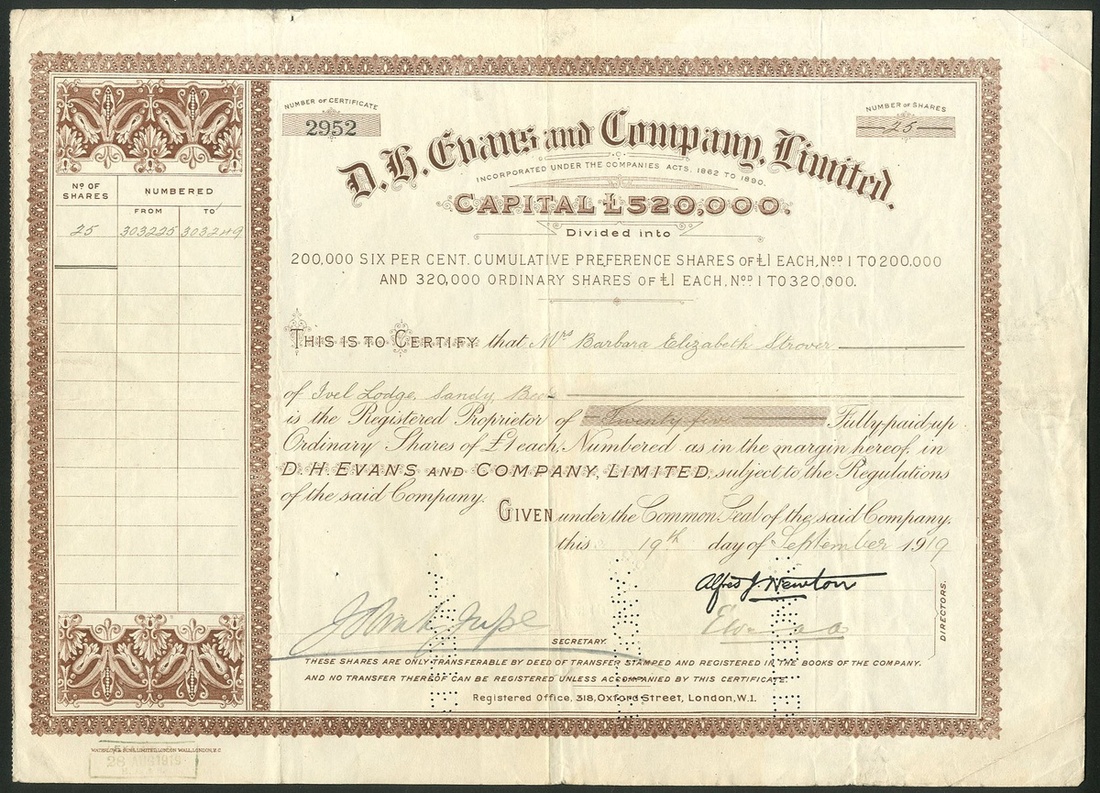 NUMBER OF CERTIFICATE
2952
NUMBER OF SHARES
25
D. H. Evans and Company, Limited.
INCORPORATED UNDER THE COMPANIES ACTS, 1862 TO 1890.
CAPITAL £520,000.
Divided into
200,000 SIX PER CENT. CUMULATIVE PREFERENCE SHARES OF £1 EACH, Nos 1 TO 200,000
AND 320,000 ORDINARY SHARES OF £1 EACH, Nos 1 TO 320,000.
No OF SHARES
NUMBERED
FROM TO
25 303225 303249
THIS IS TO CERTIFY that Mrs Barbara Elizabeth Strover
of Ivel Lodge, Sandy, Beds
is the Registered Proprietor of Twenty five Fully paid up
Ordinary Shares of £1 each, Numbered as in the margin hereof, in
D. H. EVANS AND COMPANY, LIMITED, subject to the Regulations
of the said Company.
GIVEN under the Common Seal of the said Company,
this 19th day of September 1919
Alfred J. Newton
DIRECTORS.
SECRETARY.
THESE SHARES ARE ONLY TRANSFERABLE BY DEED OF TRANSFER STAMPED AND REGISTERED IN THE BOOKS OF THE COMPANY.
AND NO TRANSFER THEREOF CAN BE REGISTERED UNLESS ACCOMPANIED BY THIS CERTIFICATE.
Registered Office, 318, Oxford Street, London, W.1.
WATERLOW & SONS, LIMITED, LONDON WALL, LONDON, E.C.
28 AUG 1919